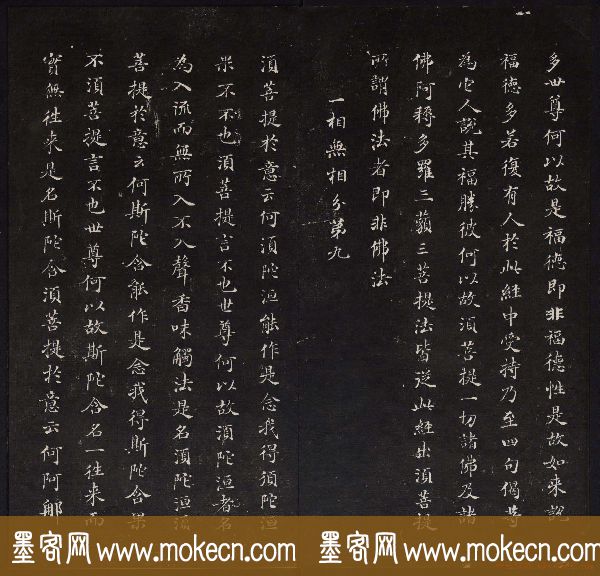 多世尊何以故是福德即非福德性是故如来說
福德多若復有人於此經中受持乃至四句偈等
為它人說其福勝彼何以故須菩提一切諸佛及諸
佛阿耨多羅三藐三菩提法皆從此經出須菩提
所謂佛法者即非佛法
一相無相分第九
須菩提於意云何須陀洹能作是念我得須陀洹
果不不也須菩提言不也世尊何以故須陀洹者名
為入流而無所入不入聲香味觸法是名須陀洹須
菩提於意云何斯陀含能作是念我得斯陀含果
不須菩提言不也世尊何以故斯陀含名一往来而
實無往来是名斯陀含須菩提於意云何阿那
墨客网 www.mokecn.com 墨客网 www.mokecn.com